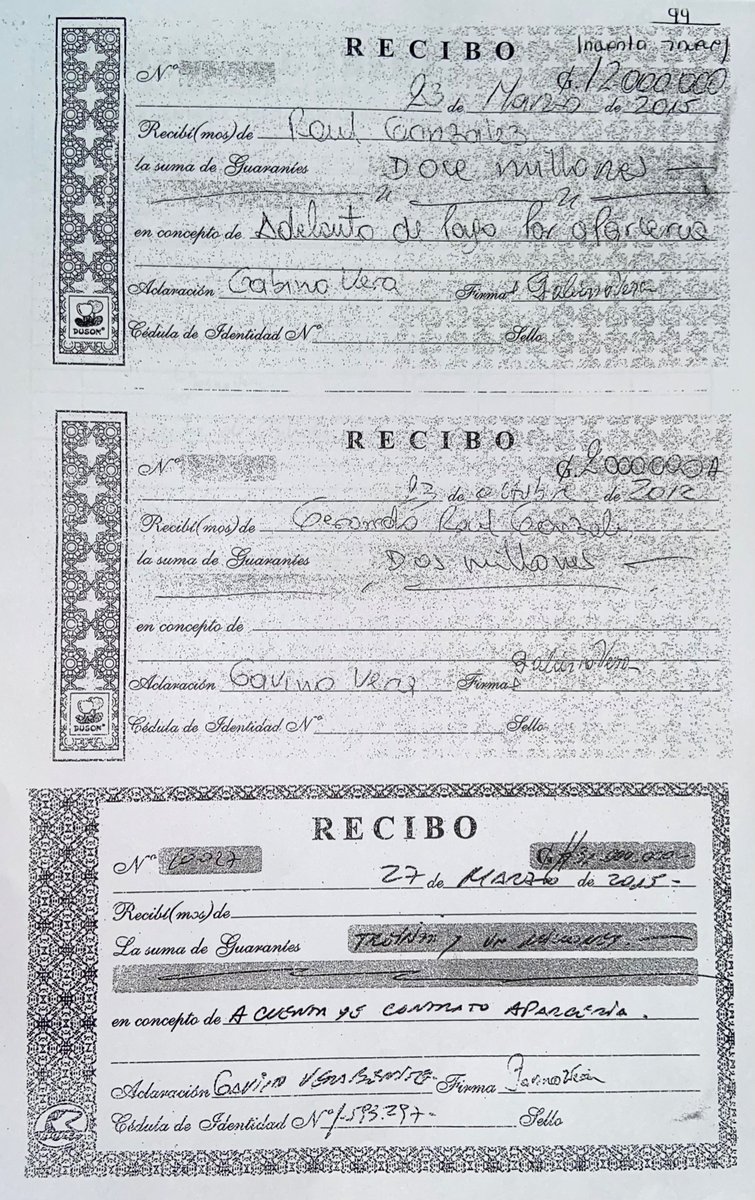 99
RECIBO
Nº
₲. 12000000
23 de Marzo de 2015
Recibí(mos) de Raul Gonzalez
la suma de Guaraníes Doce millones
en concepto de Adelanto de Pago Por aParceria
Aclaración Gabino Vera Firma Gabino Vera
Cédula de Identidad Nº Sello
DUSON
RECIBO
Nº
₲. 2000000
23 de octubre de 2012
Recibí(mos) de Gerardo Raul
la suma de Guaraníes Dos millones
en concepto de
Aclaración Gavino Vera Firma Gabino Vera
Cédula de Identidad Nº Sello
DUSON
RECIBO
Nº
₲. 31.000.000-
27 de MARZO de 2015-
Recibí(mos) de
La suma de Guaraníes TREINTA Y UN MILLONES
en concepto de A CUENTA DE CONTRATO APARCERIA.
Aclaración GAVINO VERA Firma
Cédula de Identidad Nº 1.593.297- Sello